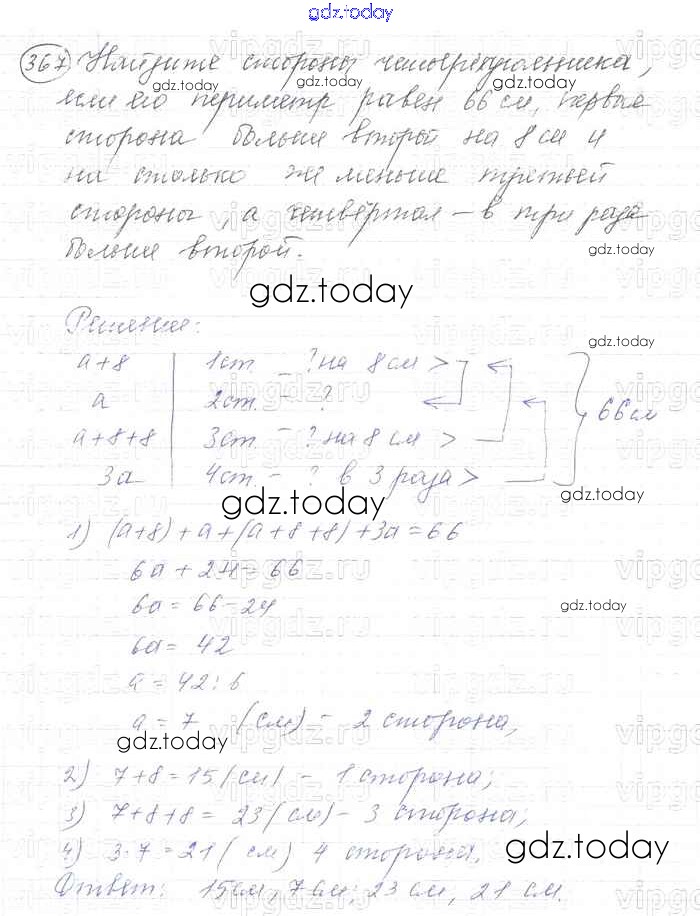 gdz.today
367 Найдите стороны четырехугольника,
если его периметр равен 66 см, первая
сторона больше второй на 8 см и
на столько же меньше третьей
стороны, а четвёртая – в три раза
больше второй.
gdz.today
Решение:
a+8 | 1 ст. – ? на 8 см >
a | 2 ст. – ?
a+8+8 | 3 ст. – ? на 8 см >
3a | 4 ст. – ? в 3 раза >
66 см
gdz.today
1) (a+8)+a+(a+8+8)+3a=66
6a+24=66
6a=66-24
6a=42
a=42:6
a=7 (см) – 2 сторона,
gdz.today
2) 7+8=15 (см) – 1 сторона;
3) 7+8+8=23 (см) – 3 сторона;
4) 3·7=21 (см) 4 сторона,
gdz.today
Ответ: 15 см, 7 см; 23 см, 21 см.